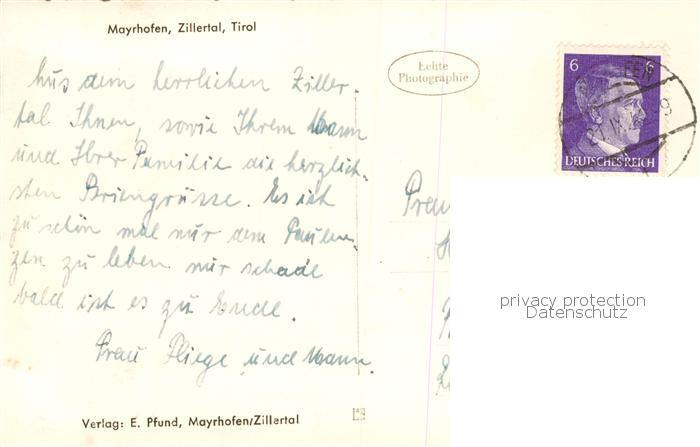 Mayrhofen, Zillertal, Tirol
Echte
Photographie
6 6
DEUTSCHES REICH
Aus dem herrlichen Ziller-
tal Ihnen, sowie Ihrem Mann
und Ihrer Familie die herzlich-
sten Feriengrüsse. Es ist
zu schön mal nur dem Faulen-
zen zu leben nur schade
bald ist es zu Ende.
Frau Fliege und Mann.
Frau
privacy protection
Datenschutz
Verlag: E. Pfund, Mayrhofen/Zillertal